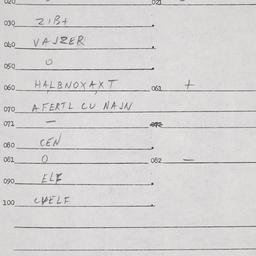 020 021
030 ZIBT
040 VAJZER
050 O
060 HALBNOXAXT 061 +
070 AFERTL CU NAJN
071 — 072
080 CEN
081 O 082 —
090 ELF
100 CVELF